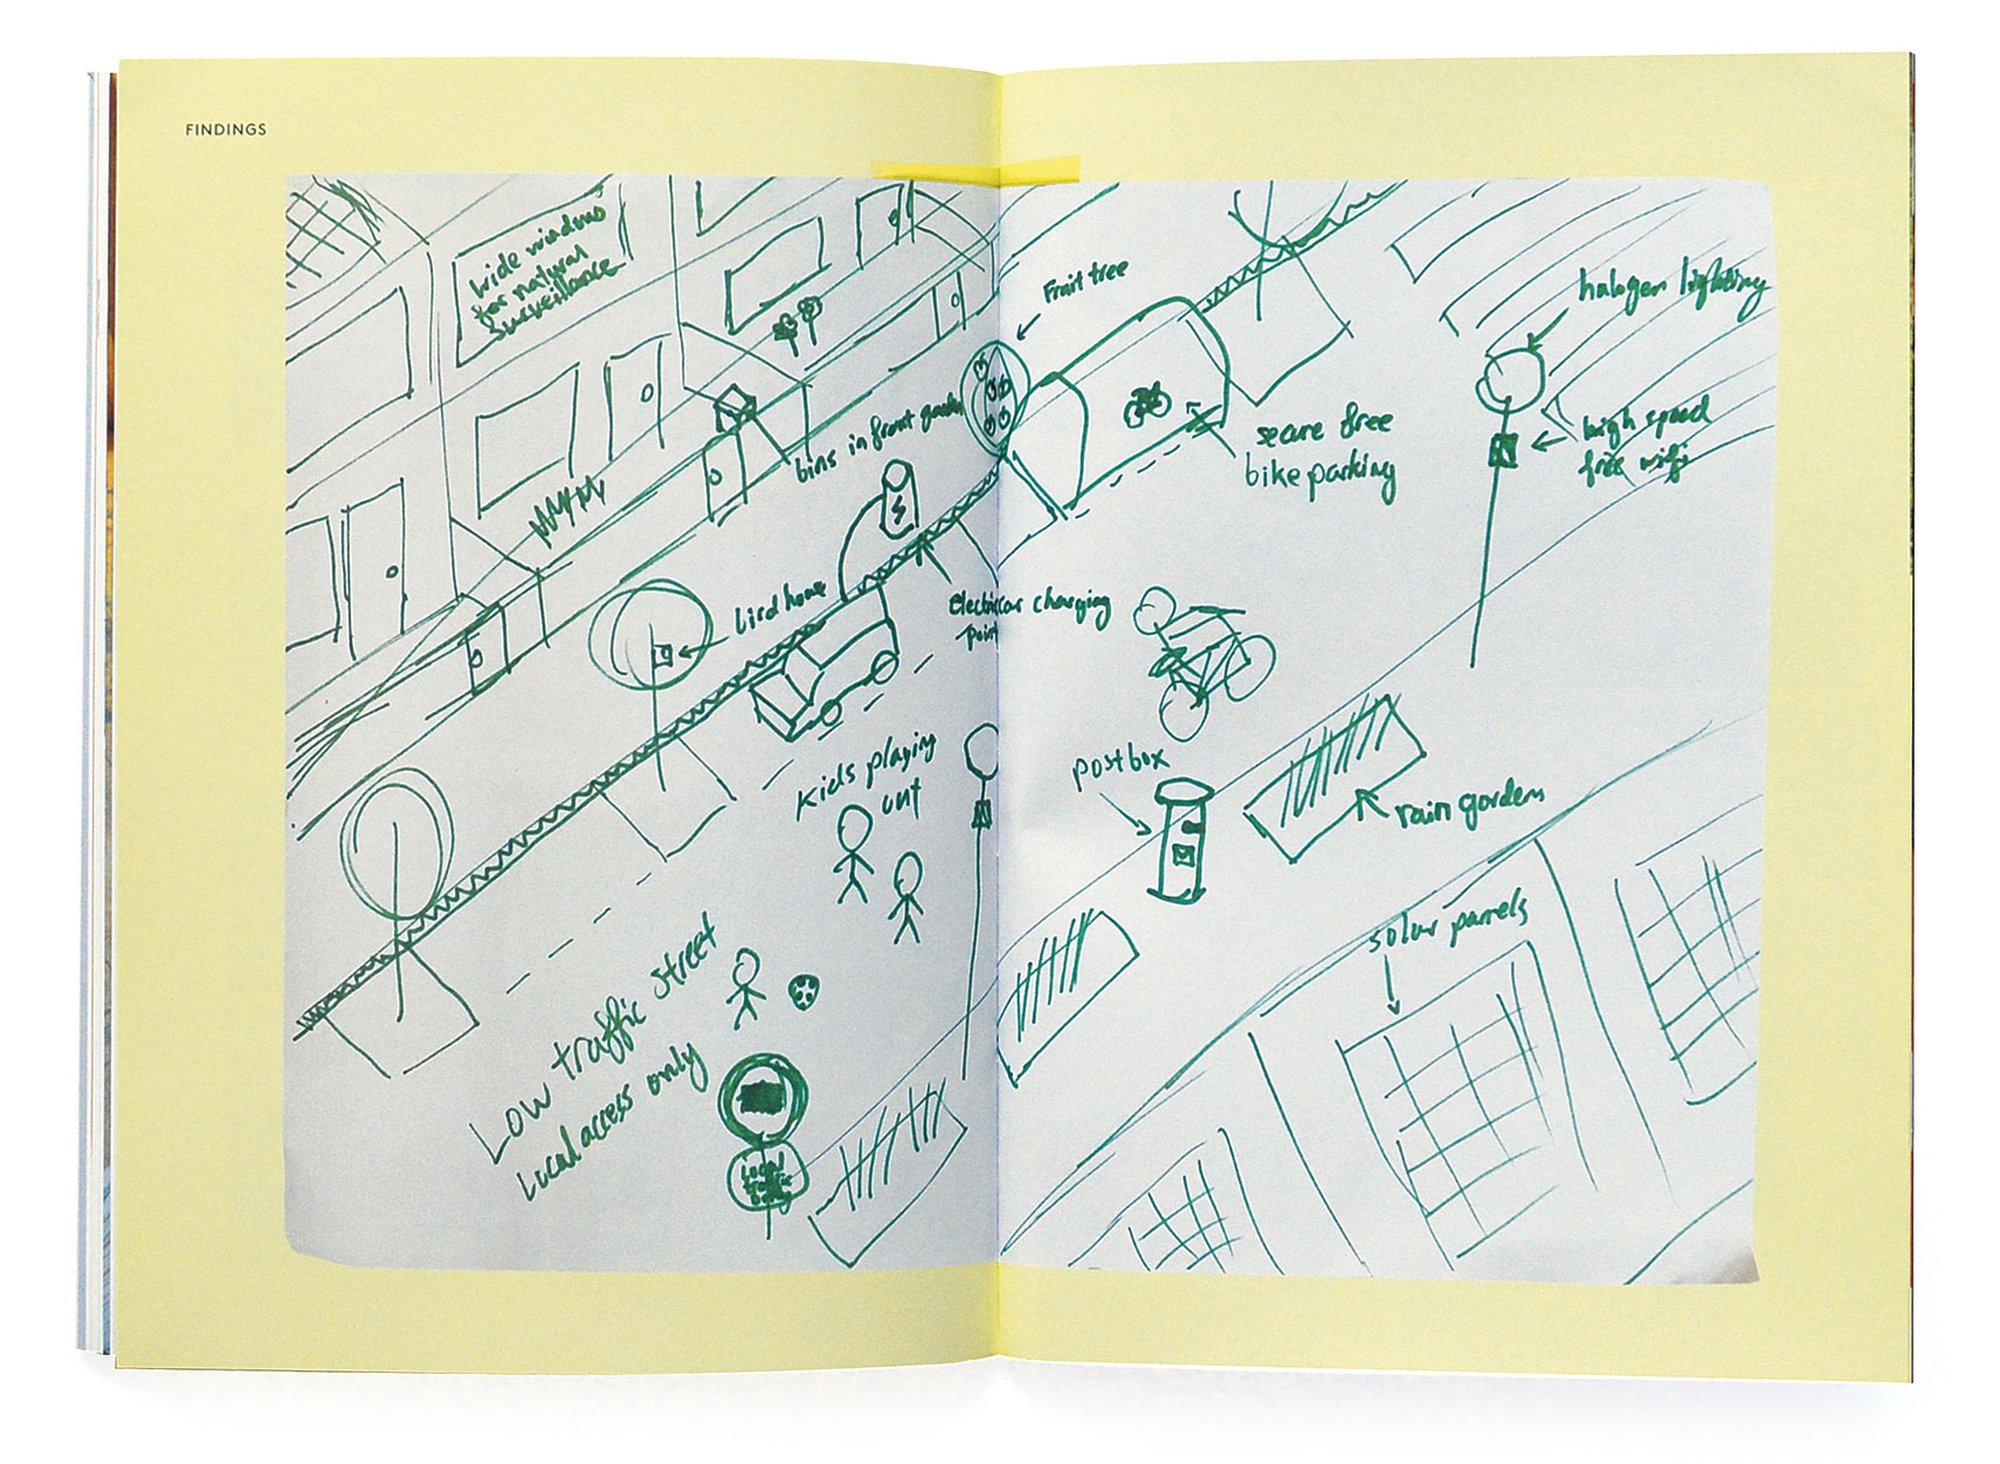 FINDINGS
wide windows
for natural
surveillance
bins in front gardens
bird house
Fruit tree
secure free
bike parking
halogen lighting
high speed
free wifi
Electric car charging
point
kids playing
out
postbox
rain gardens
solar panels
Low traffic street
Local access only
Local
traffic
only